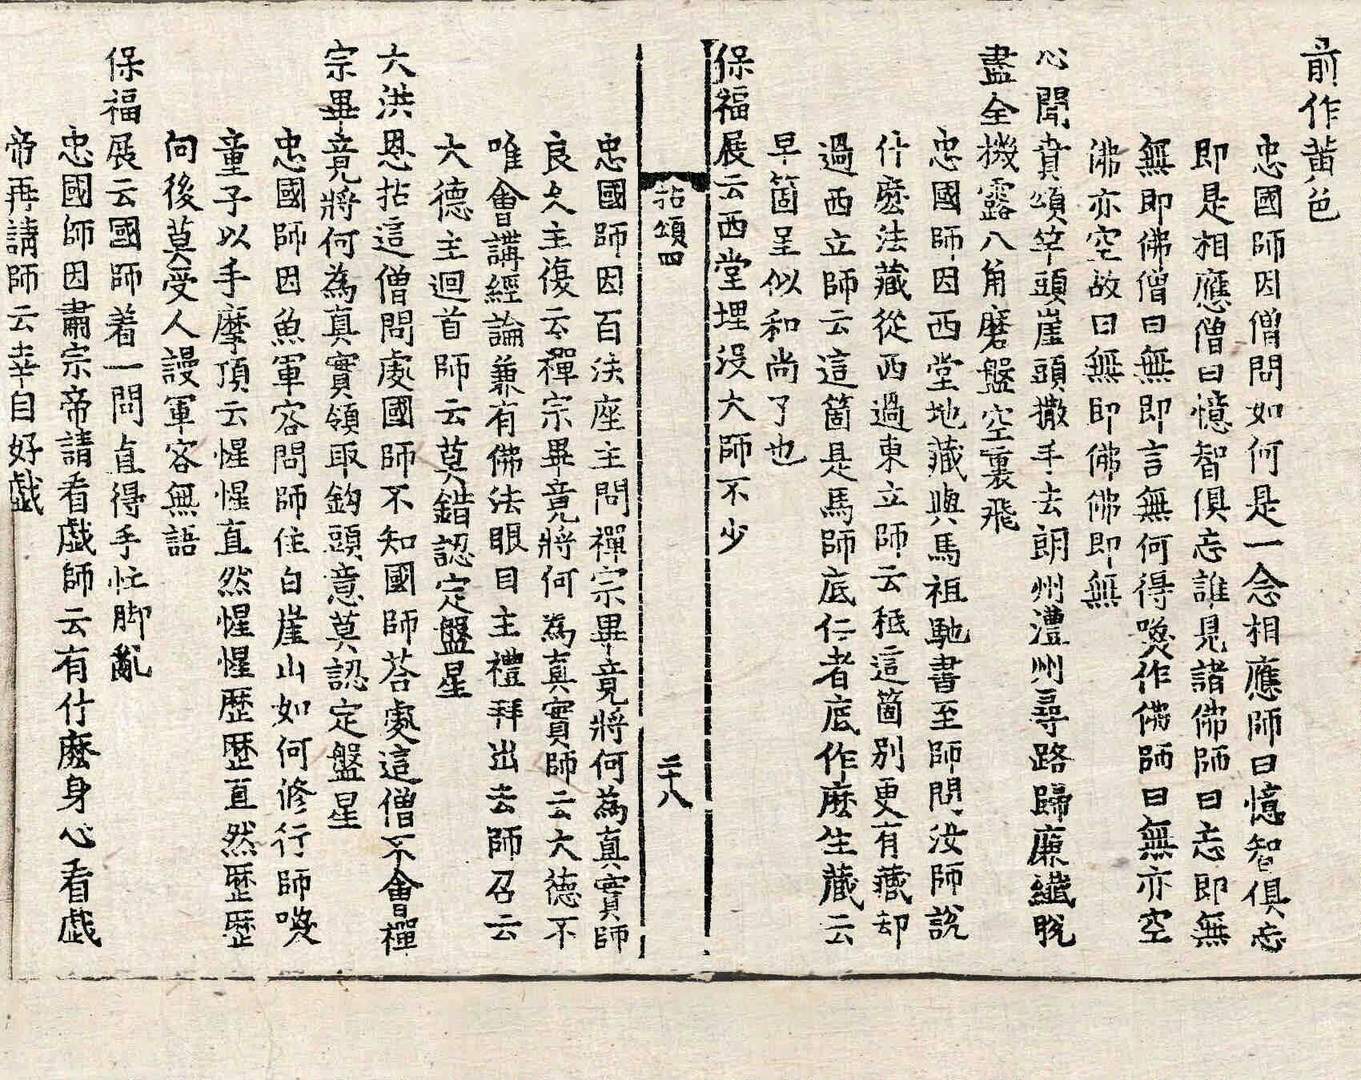 前作黄色
忠國師因僧問如何是一念相應師曰憶智俱忘
即是相應僧曰憶智俱忘誰見諸佛師曰忘即無
無即佛僧曰無即言無何得喚作佛師曰無亦空
佛亦空故曰無即佛佛即無
心聞賁頌竿頭崖頭撒手去朗州澧州尋路歸廉纖脫
盡全機露八角磨盤空裏飛
忠國師因西堂地藏與馬祖馳書至師問汝師說
什麽法藏從西過東立師云秪這箇別更有藏却
過西立師云這箇是馬師底仁者底作麽生藏云
早箇呈似和尚了也
保福展云西堂埋没大師不少
拈頌四
二十八
忠國師因百法座主問禪宗畢竟將何為真實師
良久主復云禪宗畢竟將何為真實師云大德不
唯會講經論兼有佛法眼目主禮拜出去師召云
大德主迴首師云莫錯認定盤星
大洪恩拈這僧問處國師不知國師荅處這僧不會禪
宗畢竟將何為真實領取鈎頭意莫認定盤星
忠國師因魚軍容問師住白崖山如何修行師喚
童子以手摩頂云惺惺直然惺惺歷歷直然歷歷
向後莫受人謾軍容無語
保福展云國師着一問直得手忙脚亂
忠國師因肅宗帝請看戯師云有什麽身心看戯
帝再請師云幸自好戯